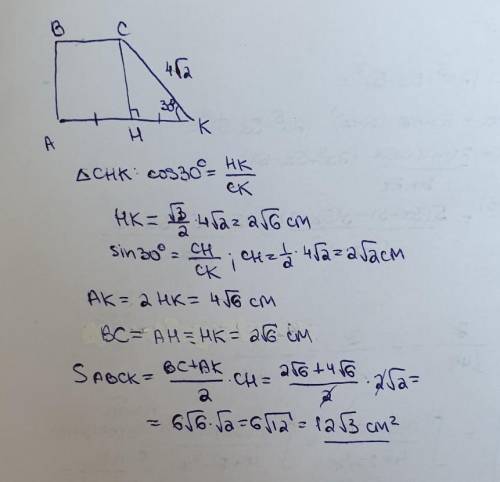 B C
4√2
30°
A H K
△CHK: cos30° = HK/CK
HK = √3/2 · 4√2 = 2√6 см
sin30° = CH/CK ; CH = 1/2 · 4√2 = 2√2 см
AK = 2HK = 4√6 см
BC = AH = HK = 2√6 см
SABCK = BC+AK/2 · CH = 2√6+4√6/2 · 2√2 =
= 6√6 · √2 = 6√12 = 12√3 см²